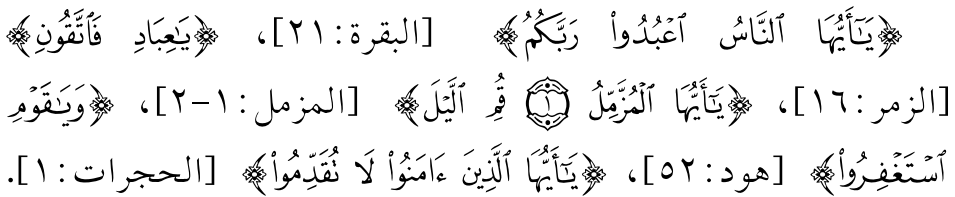 ﴿يَٰٓأَيُّهَا ٱلنَّاسُ ٱعۡبُدُواْ رَبَّكُمُ﴾ [البقرة:٢١]، ﴿يَٰعِبَادِ فَٱتَّقُونِ﴾
[الزمر:١٦]، ﴿يَٰٓأَيُّهَا ٱلۡمُزَّمِّلُ ١ قُمِ ٱلَّيۡلَ﴾ [المزمل:١-٢]، ﴿وَيَٰقَوۡمِ
ٱسۡتَغۡفِرُواْ﴾ [هود:٥٢]، ﴿يَٰٓأَيُّهَا ٱلَّذِينَ ءَامَنُواْ لَا تُقَدِّمُواْ﴾ [الحجرات:١].